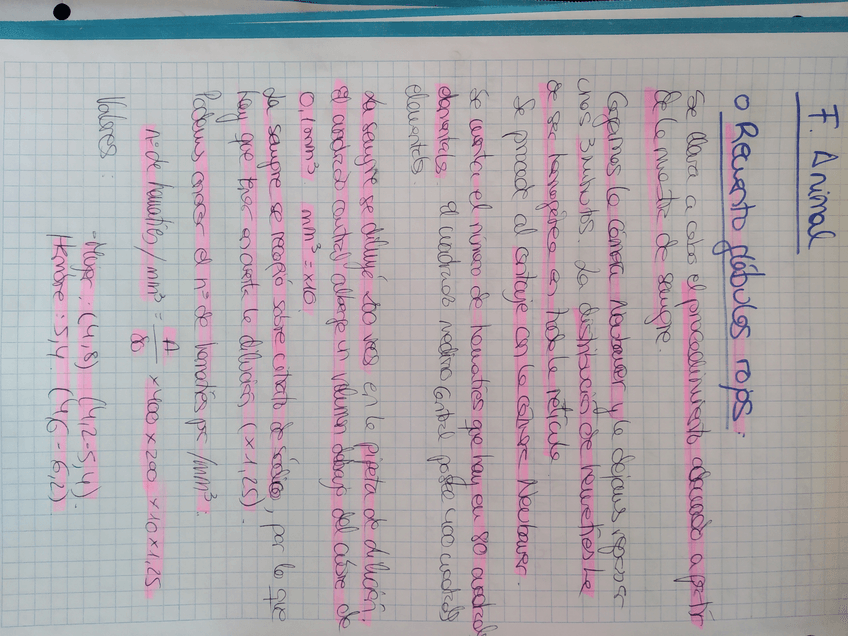 F. Animal
o Recuento glóbulos rojos:
Se lleva a cabo el procedimiento adecuado a partir
de la muestra de sangre.
Cogemos la cámara Neubauer y la dejamos reposar
unos 3 minutos. La distribución de hematíes ha
de ser homogénea en toda la retícula
Se procede al contaje en la cámara Neubauer.
Se cuenta el número de hematíes que hay en 80 cuadrados
elementales. El cuadrado medio central posee 400 cuadrados
elementales.
La sangre se diluyó 200 veces en la pipeta de dilución.
El cuadrado central alberga un volumen debajo del cubre de
0,1 mm³. mm³ = x10
La sangre se recogió sobre citrato de sódico, por lo que
hay que tener en cuenta la dilución (x1,25).
Podemos conocer el nº de hematíes por /mm³:
nº de hematíes/mm³ = A/80 x 400 x 200 x 10 x 1,25
Valores:
- Mujer: (4,8) (4,2-5,4).
Hombre: 5,4 (4,6-6,2).